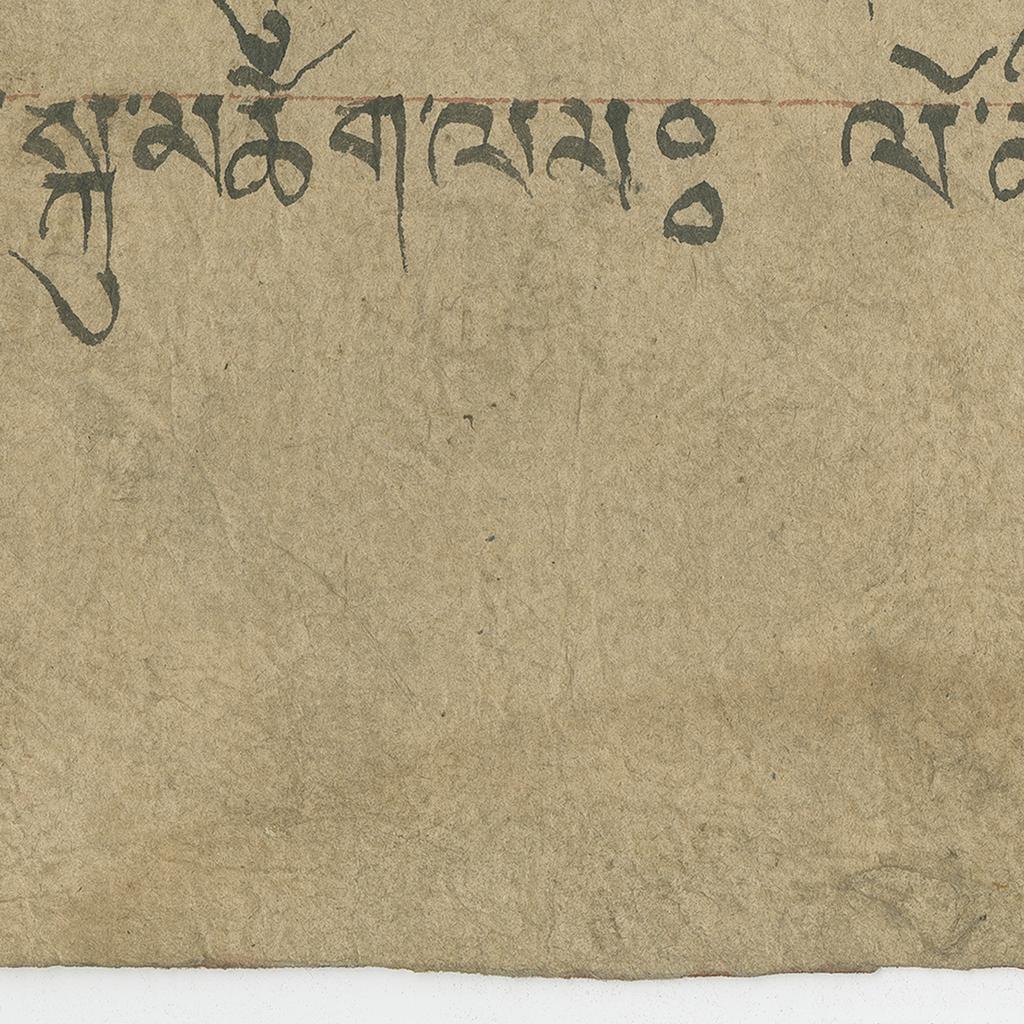 སྐུ་མཆོག་ལམ༔ ལོ་